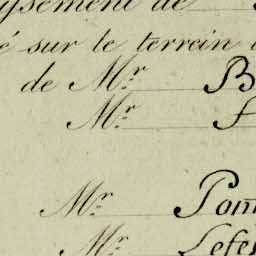 ssement de
é sur le terrein
de Mr. B
Mr.
Mr. Pom
Mr. Lefe